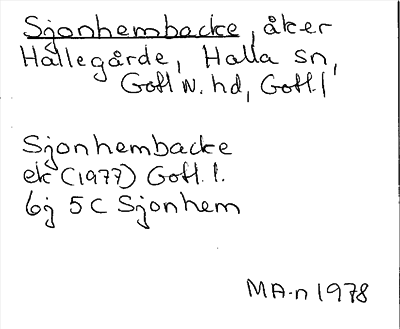 Sjonhembacke, åker
Hallegårde, Halla sn,
Gotl N. hd, Gotl. l
Sjonhembacke
ek (1977) Gotl. l.
6j 5 C Sjonhem
MA-n 1978